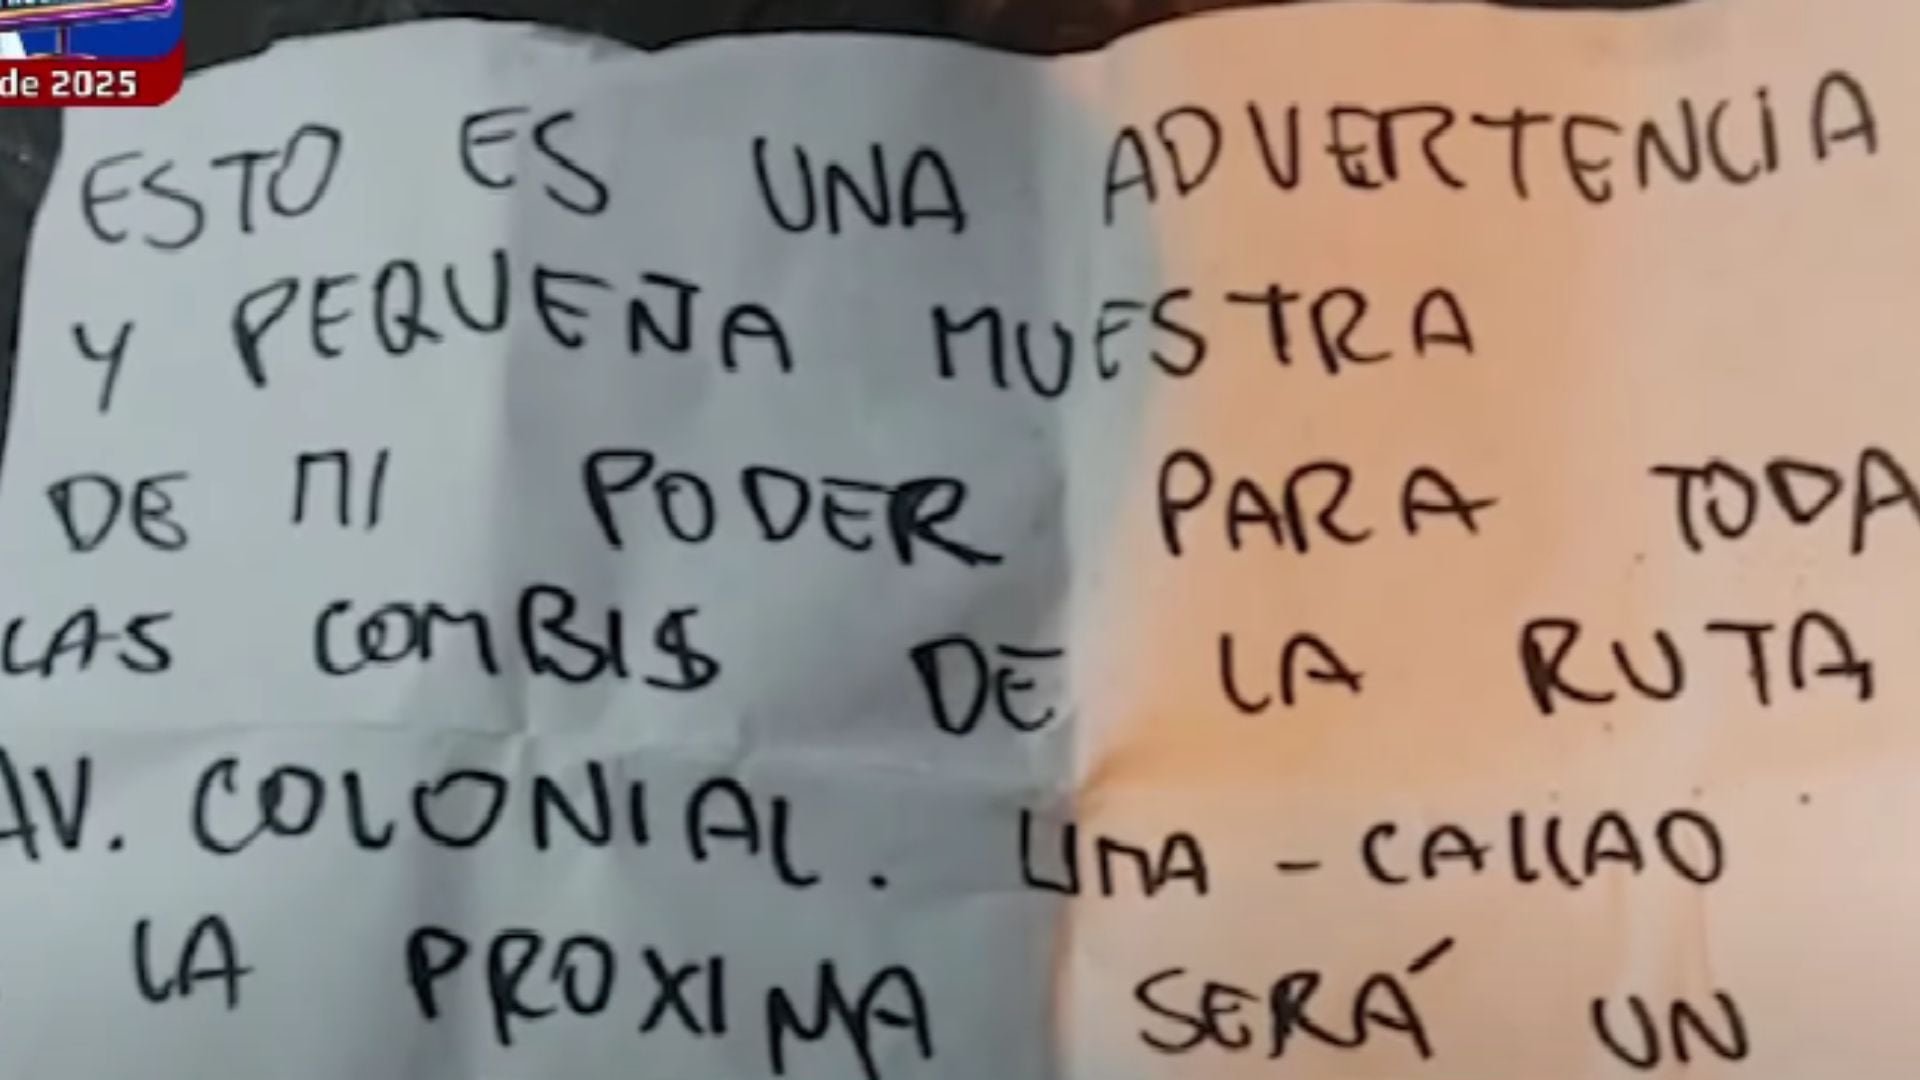 de 2025
ESTO ES UNA ADVERTENCIA
Y PEQUEÑA MUESTRA
DE MI PODER PARA TODA
LAS COMBIS DE LA RUTA
AV. COLONIAL. LIMA - CALLAO
LA PROXIMA SERÁ UN